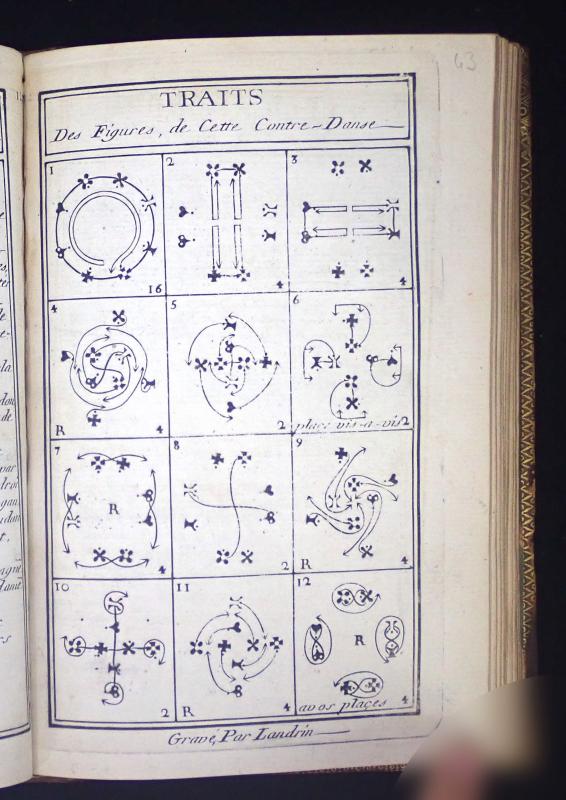 63
TRAITS
Des Figures, de Cette Contre-Danse
1 2 3
16 4 4
4 5 6
R 4 2 place vis-a-vis 2
7 8 9
R
4 2 R 4
10 11 12
R
2 R 4 avos places 4
Gravé, Par Landrin